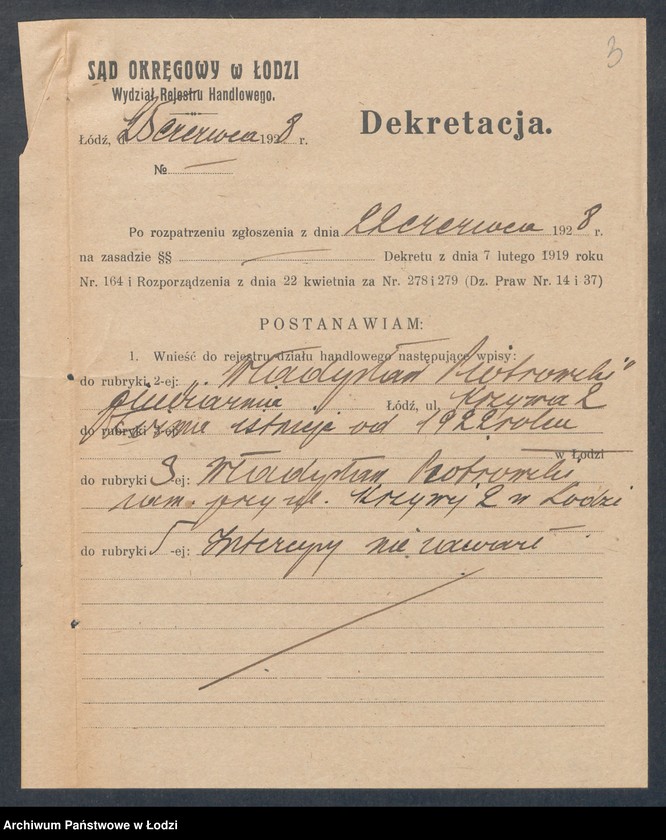 3
SĄD OKRĘGOWY w ŁODZI
Wydział Rejestru Handlowego.
Dekretacja.
Łódź, d 25 czerwca 1928 r.
№
Po rozpatrzeniu zgłoszenia z dnia 22 czerwca 1928 r.
na zasadzie §§ — Dekretu z dnia 7 lutego 1919 roku
Nr. 164 i Rozporządzenia z dnia 22 kwietnia za Nr. 278 i 279 (Dz. Praw Nr. 14 i 37)
POSTANAWIAM:
1. Wnieść do rejestru działu handlowego następujące wpisy:
do rubryki 2-ej: „Władysław Piotrowski"
piwiarnia Łódź, ul. Krzywa 2
do rubryki 3-ej: Firma istnieje od 1922 roku
w Łodzi
do rubryki 3-ej: Władysław Piotrowski
zam. przy ul. Krzywej 2 w Łodzi
do rubryki 5-ej: Intercyzy nie zawarł
Archiwum Państwowe w Łodzi